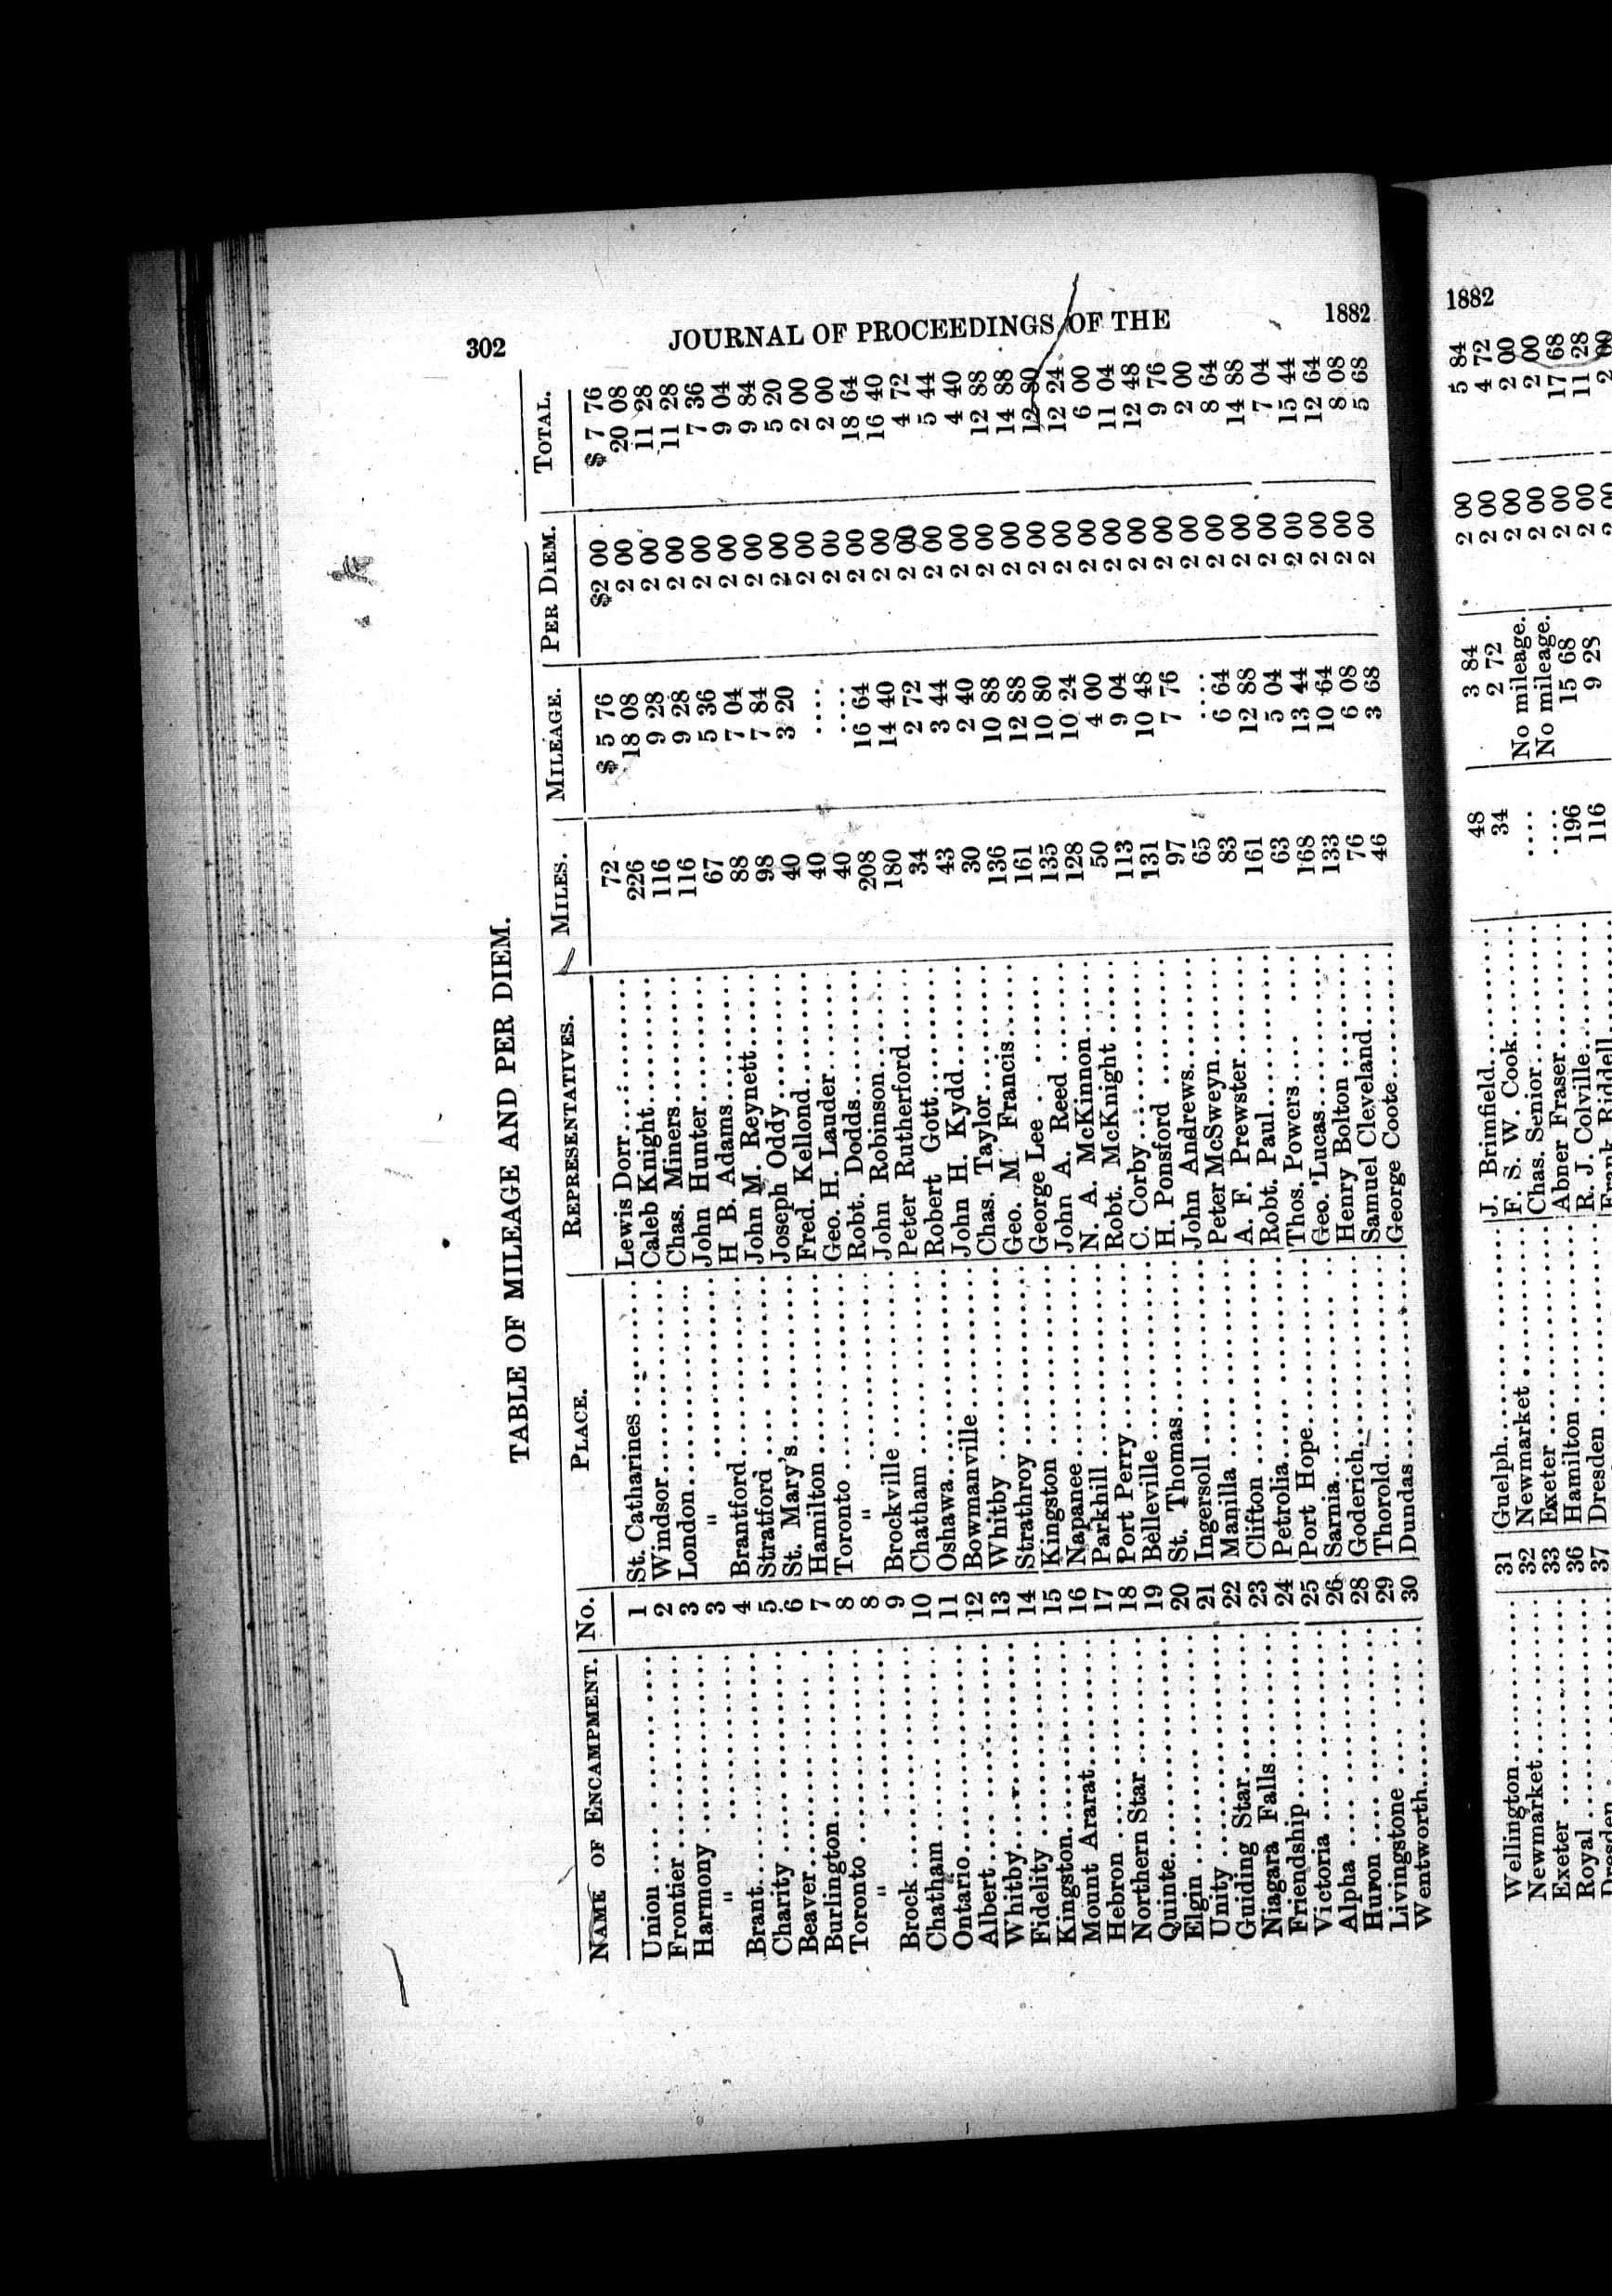 302
JOURNAL OF PROCEEDINGS OF THE
1882
TABLE OF MILEAGE AND PER DIEM.
NAME OF ENCAMPMENT. No. PLACE. REPRESENTATIVES. MILES. MILEAGE. PER DIEM. TOTAL.
Union 1 St. Catharines Lewis Dorr 72 $ 5 76 $2 00 $ 7 76
Frontier 2 Windsor Caleb Knight 226 18 08 2 00 20 08
Harmony 3 London Chas. Miners 116 9 28 2 00 11 28
" 3 " John Hunter 116 9 28 2 00 11 28
Brant 4 Brantford H B. Adams 67 5 36 2 00 7 36
Charity 5 Stratford John M. Reynett 88 7 04 2 00 9 04
Beaver 6 St. Mary's Joseph Oddy 98 7 84 2 00 9 84
Burlington 7 Hamilton Fred. Kellond 40 3 20 2 00 5 20
Toronto 8 Toronto Geo. H. Lauder 40 .... 2 00 2 00
" 8 " Robt. Dodds 40 .... 2 00 2 00
Brock 9 Brockville John Robinson 208 16 64 2 00 18 64
Chatham 10 Chatham Peter Rutherford 180 14 40 2 00 16 40
Ontario 11 Oshawa Robert Gott 34 2 72 2 00 4 72
Albert 12 Bowmanville John H. Kydd 43 3 44 2 00 5 44
Whitby 13 Whitby Chas. Taylor 30 2 40 2 00 4 40
Fidelity 14 Strathroy Geo. M Francis 136 10 88 2 00 12 88
Kingston 15 Kingston George Lee 161 12 88 2 00 14 88
Mount Ararat 16 Napanee John A. Reed 135 10 80 2 00 12 80
Hebron 17 Parkhill N. A. McKinnon 128 10 24 2 00 12 24
Northern Star 18 Port Perry Robt. McKnight 50 4 00 2 00 6 00
Quinte 19 Belleville C. Corby 113 9 04 2 00 11 04
Elgin 20 St. Thomas H. Ponsford 131 10 48 2 00 12 48
Unity 21 Ingersoll John Andrews 97 7 76 2 00 9 76
Guiding Star 22 Manilla Peter McSweyn 65 .... 2 00 2 00
Niagara Falls 23 Clifton A. F. Prewster 83 6 64 2 00 8 64
Friendship 24 Petrolia Robt. Paul 161 12 88 2 00 14 88
Victoria 25 Port Hope Thos. Powers 63 5 04 2 00 7 04
Alpha 26 Sarnia Geo. Lucas 168 13 44 2 00 15 44
Huron 28 Goderich Henry Bolton 133 10 64 2 00 12 64
Livingstone 29 Thorold Samuel Cleveland 76 6 08 2 00 8 08
Wentworth 30 Dundas George Coote 46 3 68 2 00 5 68
1882
Wellington 31 Guelph J. Brimfield 48 3 84 2 00 5 84
Newmarket 32 Newmarket F. S. W. Cook 34 2 72 2 00 4 72
Exeter 33 Exeter Chas. Senior .... No mileage. 2 00 2 00
Royal 36 Hamilton Abner Fraser .... No mileage. 2 00 2 00
Dresden 37 Dresden R. J. Colville 196 15 68 2 00 17 68
Frank Riddell 116 9 28 2 00 11 28
2 00 2 00